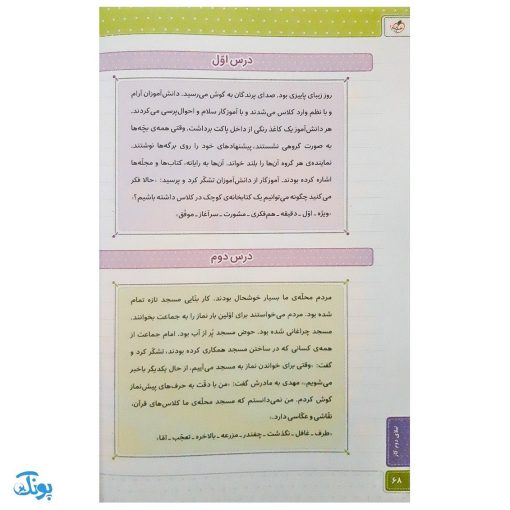 درس اوّل
روز زیبای پاییزی بود. صدای پرندگان به گوش می‌رسید. دانش‌آموزان آرام
و با نظم وارد کلاس می‌شدند و با آموزگار سلام و احوال‌پرسی می‌کردند.
هر دانش‌آموز یک کاغذ رنگی از داخل پاکت برداشت. وقتی همه‌ی بچّه‌ها
به صورت گروهی نشستند، پیشنهادهای خود را روی برگه‌ها نوشتند.
نماینده‌ی هر گروه آن‌ها را بلند خواند. آن‌ها به رایانه، کتاب‌ها و مجلّه‌ها
اشاره کرده بودند. آموزگار از دانش‌آموزان تشکّر کرد و پرسید: «حالا فکر
می‌کنید چگونه می‌توانیم یک کتابخانه‌ی کوچک در کلاس داشته باشیم؟»
«ویژه ـ اوّل ـ دقیقه ـ هم‌فکری ـ مشورت ـ سرآغاز ـ موفّق»
درس دوم
مردم محلّه‌ی ما بسیار خوشحال بودند. کار بنّایی مسجد تازه تمام
شده بود. مردم می‌خواستند برای اوّلین بار نماز را به جماعت بخوانند.
مسجد چراغانی شده بود. حوض مسجد پُر از آب بود. امام جماعت از
همه‌ی کسانی که در ساختن مسجد همکاری کرده بودند، تشکّر کرد و
گفت: «وقتی برای خواندن نماز به مسجد می‌آییم، از حال یکدیگر باخبر
می‌شویم.» مهدی به مادرش گفت: «من با دقّت به حرف‌های پیش‌نماز
گوش کردم. من نمی‌دانستم که مسجد محلّه‌ی ما کلاس‌های قرآن،
نقّاشی و عکّاسی دارد.»
«طرف ـ غافل ـ نگذشت ـ چغندر ـ مزرعه ـ بالاخره ـ تعجّب ـ امّا»
۶۸
پونک